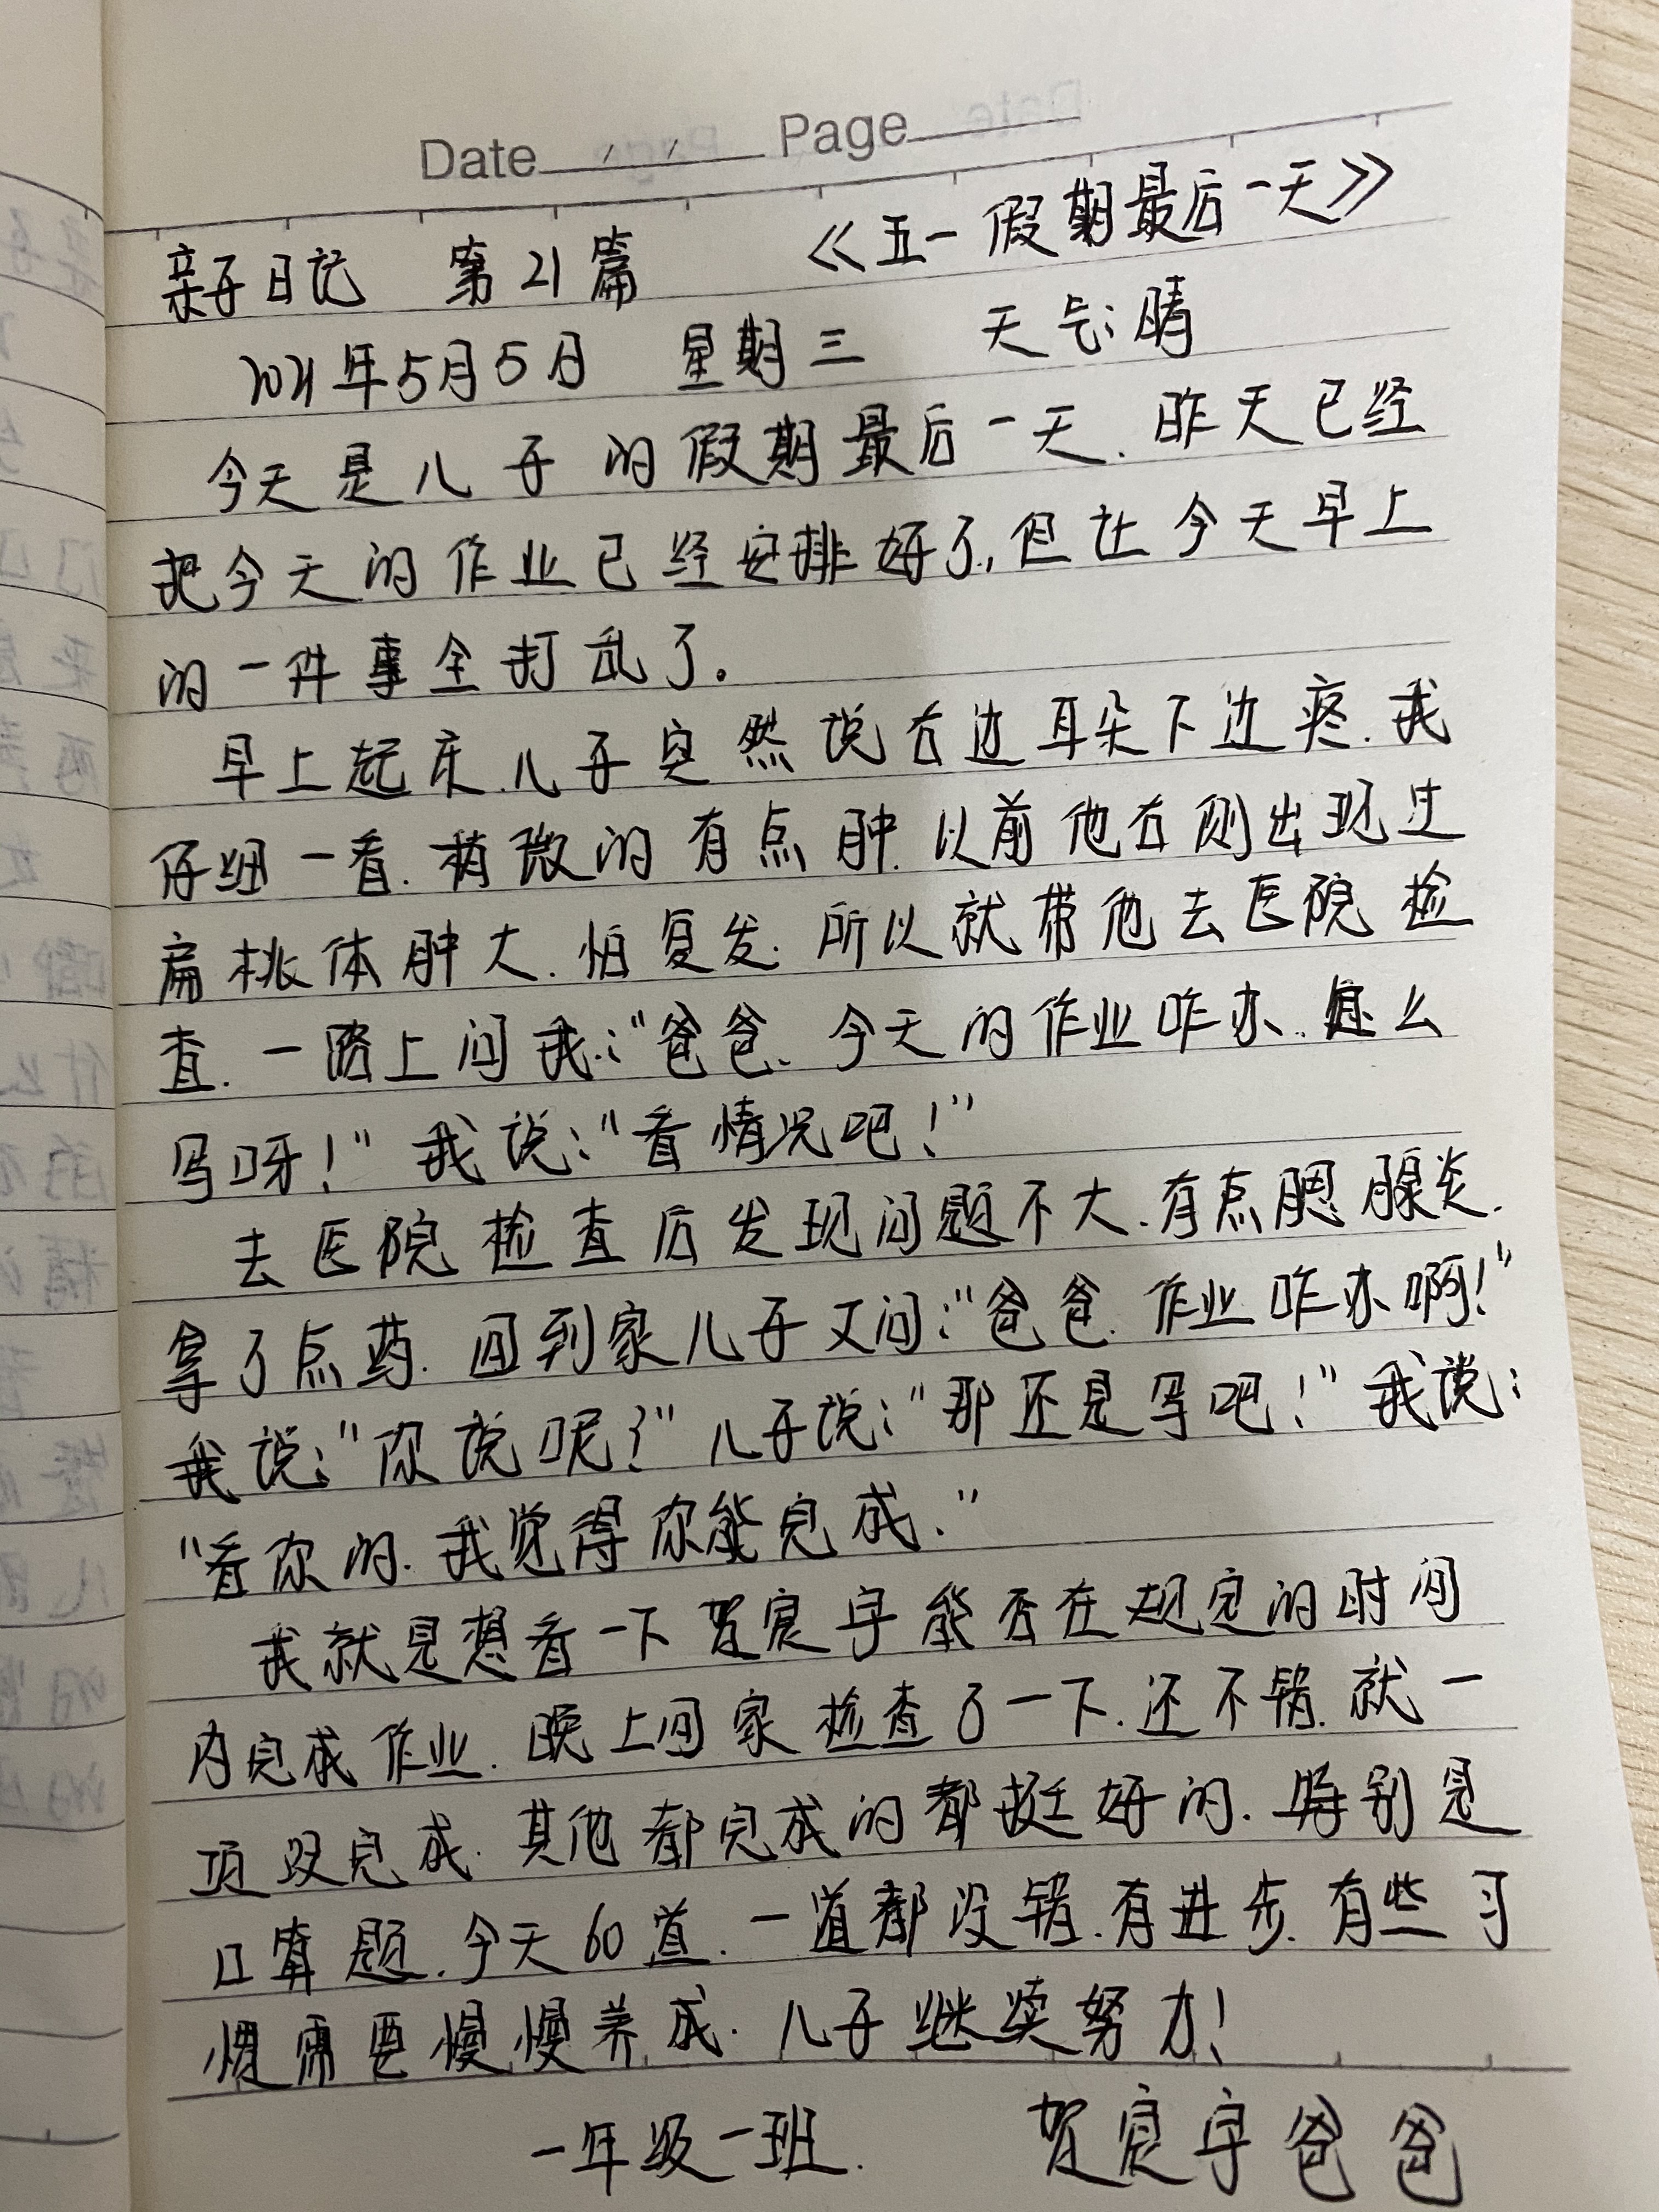 Date / / Page
亲子日记 第21篇 《五一假期最后一天》
2021年5月5日 星期三 天气:晴
今天是儿子的假期最后一天.昨天已经
把今天的作业已经安排好了,但让今天早上
的一件事全打乱了。
早上起床.儿子突然说右边耳朵下边疼.我
仔细一看.稍微的有点肿.以前他右侧出现过
扁桃体肿大.怕复发.所以就带他去医院检
查.一路上问我:"爸爸、今天的作业咋办.怎么
写呀!"我说:"看情况吧!"
去医院检查后发现问题不大.有点腮腺炎.
拿了点药.回到家儿子又问:"爸爸.作业咋办啊!"
我说:"你说呢?"儿子说:"那还是写吧!"我说:
"看你的.我觉得你能完成."
我就是想看一下贺宸宇能否在规定的时间
内完成作业.晚上回家检查了一下.还不错.就一
项没完成.其他都完成的都挺好的.特别是
口算题.今天60道.一道都没错.有进步.有些习
惯需要慢慢养成.儿子继续努力!
一年级一班. 贺宸宇爸爸